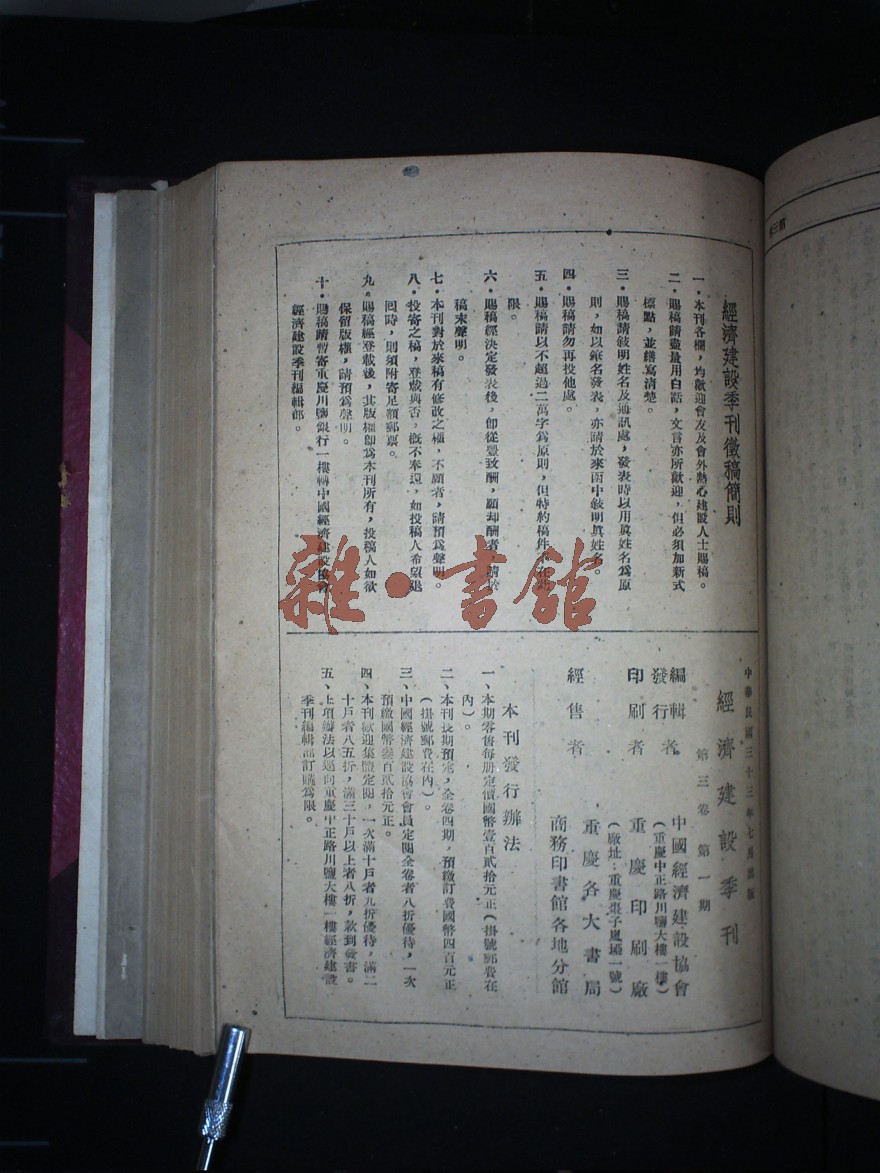 經濟建設季刊徵稿簡則
一・本刊各欄,均歡迎會友及會外熱心建設人士賜稿。
二・賜稿請盡量用白話,文言亦所歡迎,但必須加新式
標點,並繕寫清楚。
三・賜稿請敍明姓名及通訊處,發表時以用眞姓名爲原
則,如以筆名發表,亦請於來函中敍明眞姓名。
四・賜稿請勿再投他處。
五・賜稿請以不超過二萬字爲原則,但特約稿件不在此
限。
六・賜稿經決定發表後,卽從豐致酬,願却酬者,請於
稿末聲明。
七・本刊對於來稿有修改之權,不願者,請預爲聲明。
八・投寄之稿,登載與否,槪不奉還,如投稿人希望退
囘時,則須附寄足額郵票。
九・賜稿經登載後,其版權卽爲本刊所有,投稿人如欲
保留版權,請預爲聲明。
十・賜稿請暫寄重慶川鹽銀行一樓轉中國經濟建設協會
經濟建設季刊編輯部。
中華民國三十三年七月出版
經濟建設季刊
第三卷 第一期
編輯者
發行者 中國經濟建設協會
(重慶中正路川鹽大樓一樓)
印刷者 重慶印刷廠
(廠址:重慶棗子嵐埡一號)
經售者 重慶各大書局
商務印書館各地分館
本刊發行辦法
一、本期零售每册定價國幣壹百貳拾元正(掛號郵費在
內)。
二、本刊長期預定,全卷四期,預繳訂費國幣四百元正
(掛號郵費在內)。
三、中國經濟建設協會會員定閱全卷者八折優待,一次
預繳國幣叁百貳拾元正。
四、本刊歡迎集體定閱,一次滿十戶者九折優待,滿二
十戶者八五折,滿三十戶以上者八折,款到發書。
五、上項辦法以逕向重慶中正路川鹽大樓一樓經濟建設
季刊編輯部訂購爲限。
雜・書館